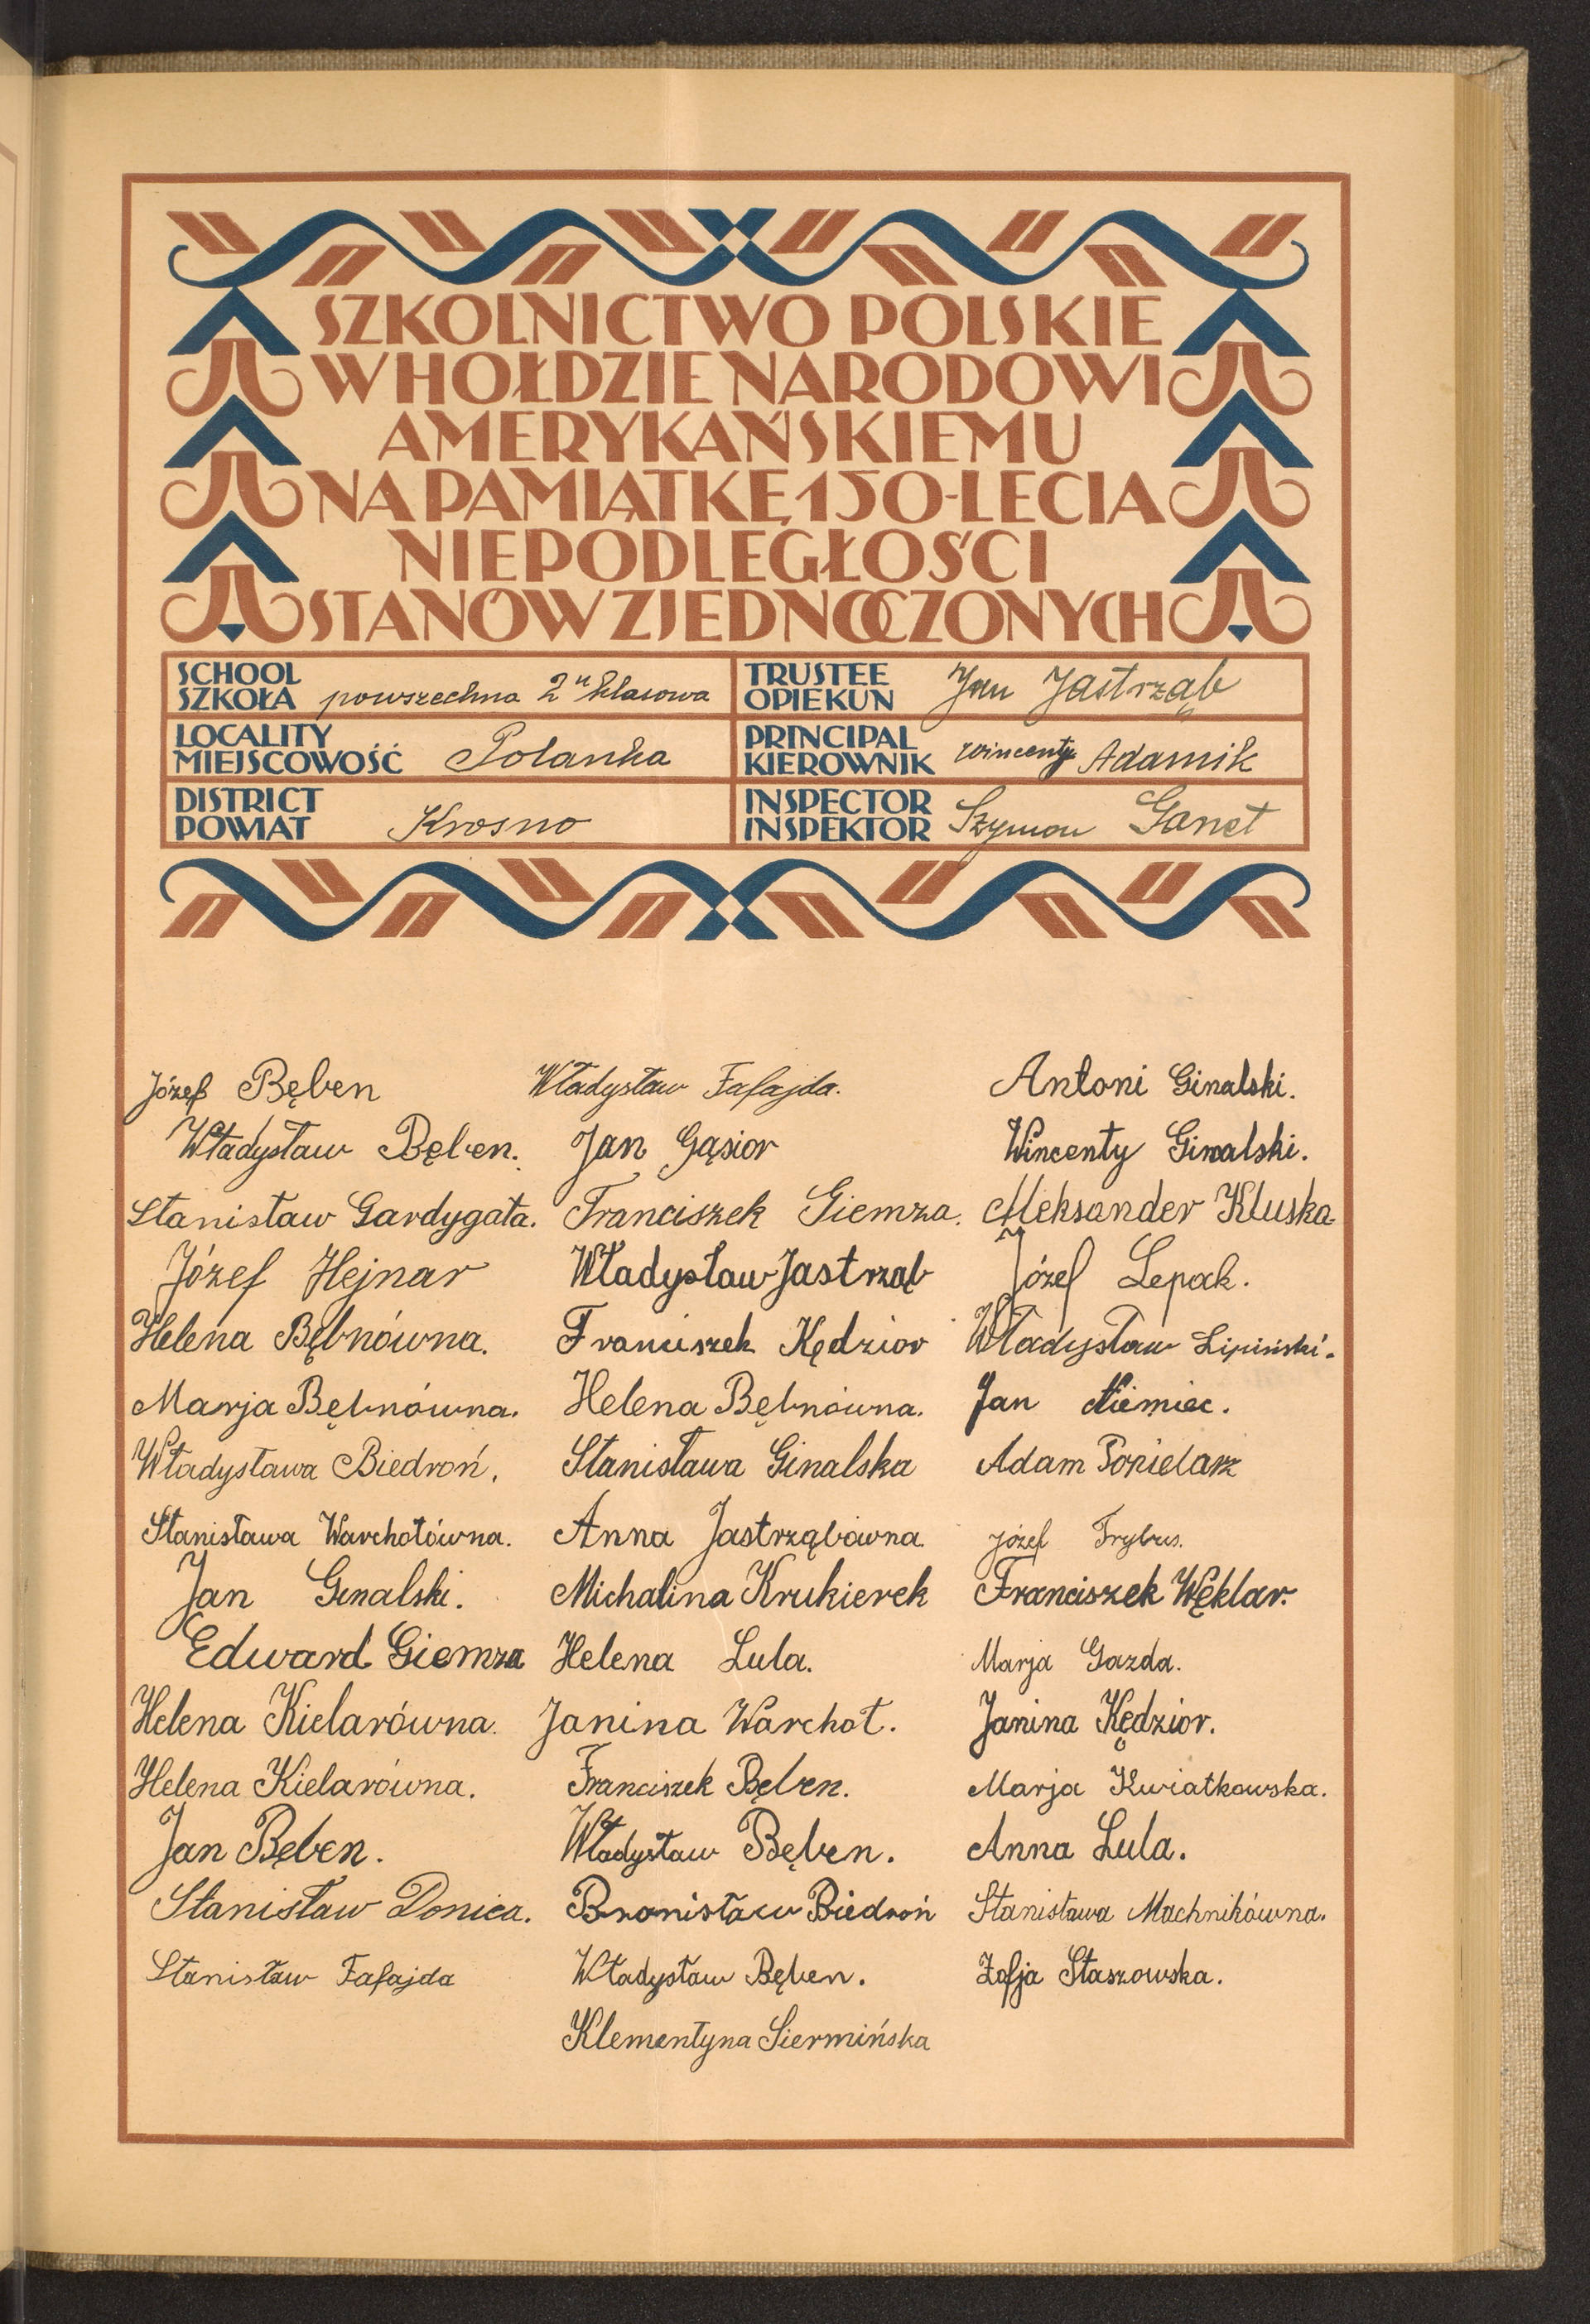 SZKOLNICTWO POLSKIE
W HOŁDZIE NARODOWI
AMERYKAŃSKIEMU
NA PAMIĄTKĘ 150-LECIA
NIEPODLEGŁOŚCI
STANÓW ZJEDNOCZONYCH
SCHOOL
SZKOŁA powszechna 2" klasowa
TRUSTEE
OPIEKUN Jan Jastrząb
LOCALITY
MIEJSCOWOŚĆ Polanka
PRINCIPAL
KIEROWNIK Wincenty Adamik
DISTRICT
POWIAT Krosno
INSPECTOR
INSPEKTOR Szymon Ganet
Józef Bęben
Władysław Bęben.
Stanisław Gardygała.
Józef Hejnar
Helena Bębnówna.
Marja Bębnówna.
Władysława Biedroń.
Stanisława Warchołówna.
Jan Ginalski.
Edward Giemza
Helena Kielarówna.
Helena Kielarówna.
Jan Bęben.
Stanisław Donica.
Stanisław Fafajda
Władysław Fafajda.
Jan Gąsior
Franciszek Giemza.
Władysław Jastrząb
Franciszek Kędzior
Helena Bębnówna.
Stanisława Ginalska
Anna Jastrząbówna.
Michalina Krukierek
Helena Lula.
Janina Warchoł.
Franciszek Bęben.
Władysław Bęben.
Bronisław Biedroń
Władysław Bęben.
Klementyna Siermińska
Antoni Ginalski.
Wincenty Ginalski.
Aleksander Kluska
Józef Lepak.
Władysław Lipiński.
Jan Niemiec.
Adam Popielarz
Józef Trybus.
Franciszek Węklar.
Marja Gazda.
Janina Kędzior.
Marja Kwiatkowska.
Anna Lula.
Stanisława Machnikówna.
Zofja Staszowska.